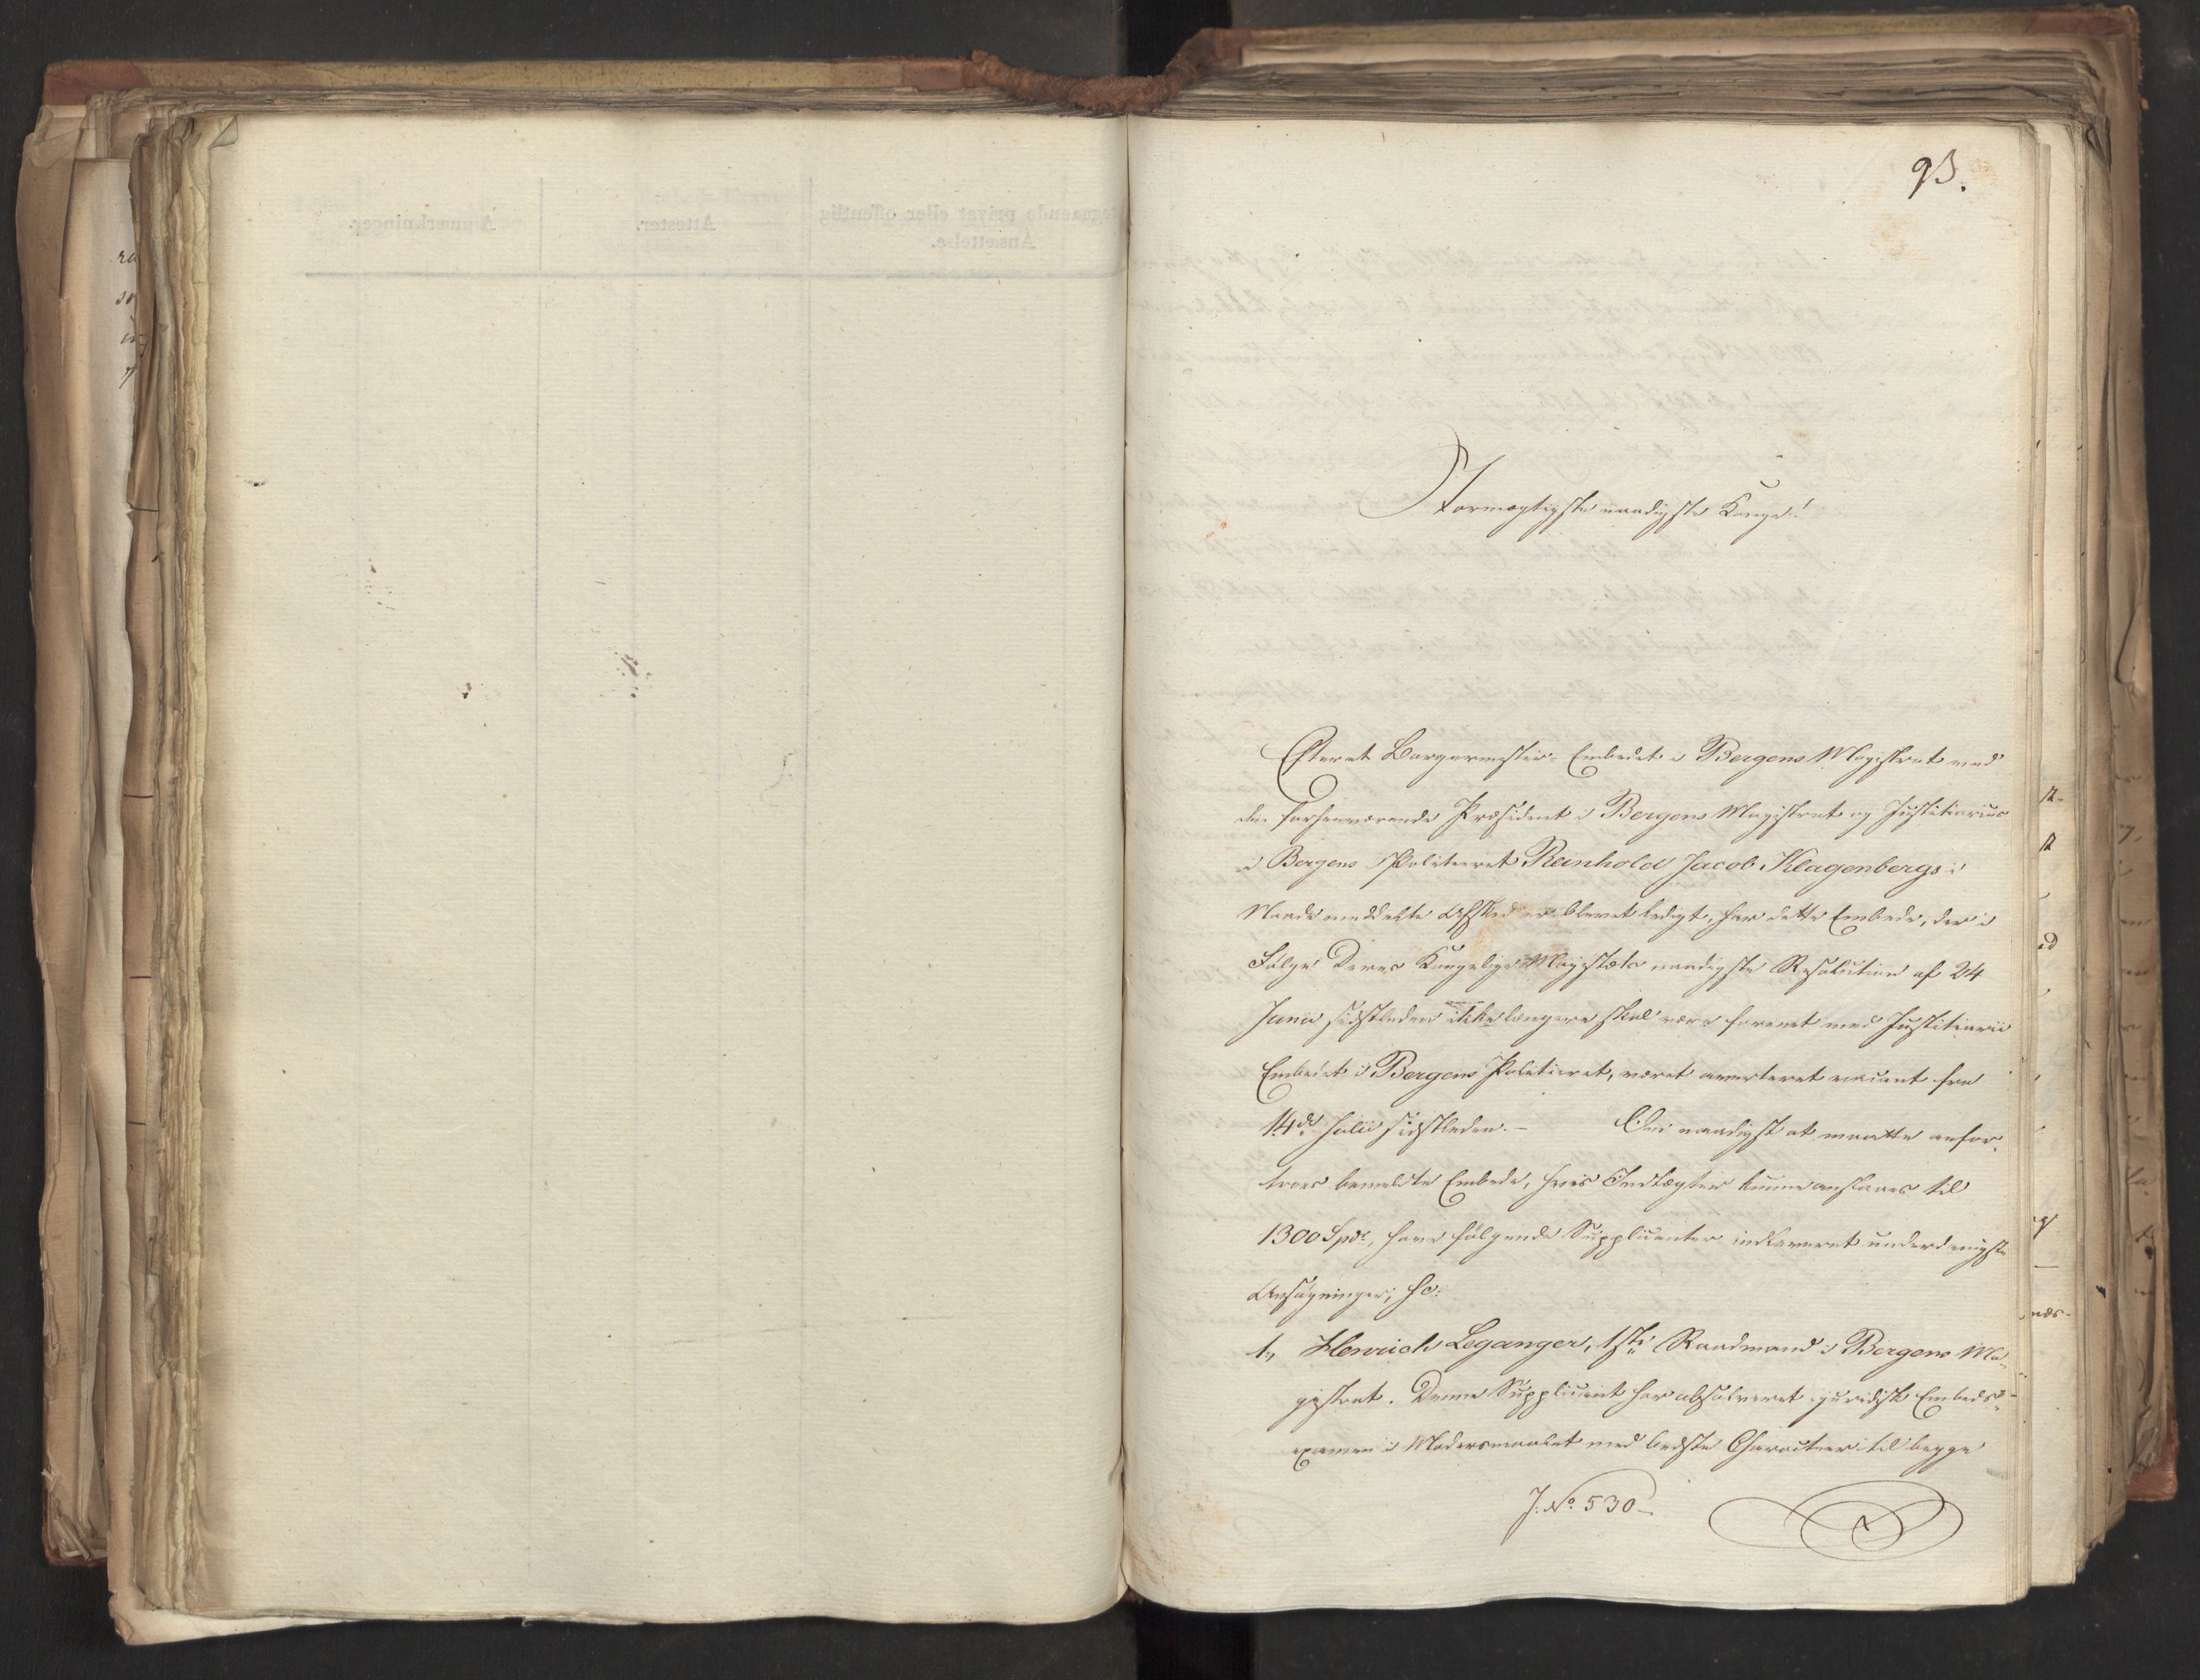 93.
Stormægtigste naadigste Konge!
Efterat Borgermester-Embedet i Bergens Magistrat ved
den forhenværende Præsident i Bergens Magistrat og Justitiarius
i Bergens Politieret Reinhold Jacob Klagenbergs i
Naade meddelte Afsked er blevet ledigt, har dette Embede, der i
Følge Deres Kongelige Majestæts naadigste Resolution af 24
Junii sidstleden ikke længere skal være forenet med Justitiarii
Embedet i Bergens Politieret, været averteret vacant fra
14de Julii sidstleden. – Om naadigst at maatte anfor-
troes bemeldte Embede, hvis Indtægter kunne anslaaes til
1300 Spd., have følgende Supplicanter indleveret underdanigste
Ansøgninger;
1, Henrich Leganger, 1ste Raadmand i Bergens Ma-
gistrat. Denne Supplicant har absolveret juridisk Embeds-
examen i Modersmaalet med bedste Characteer til begge
J. No 530